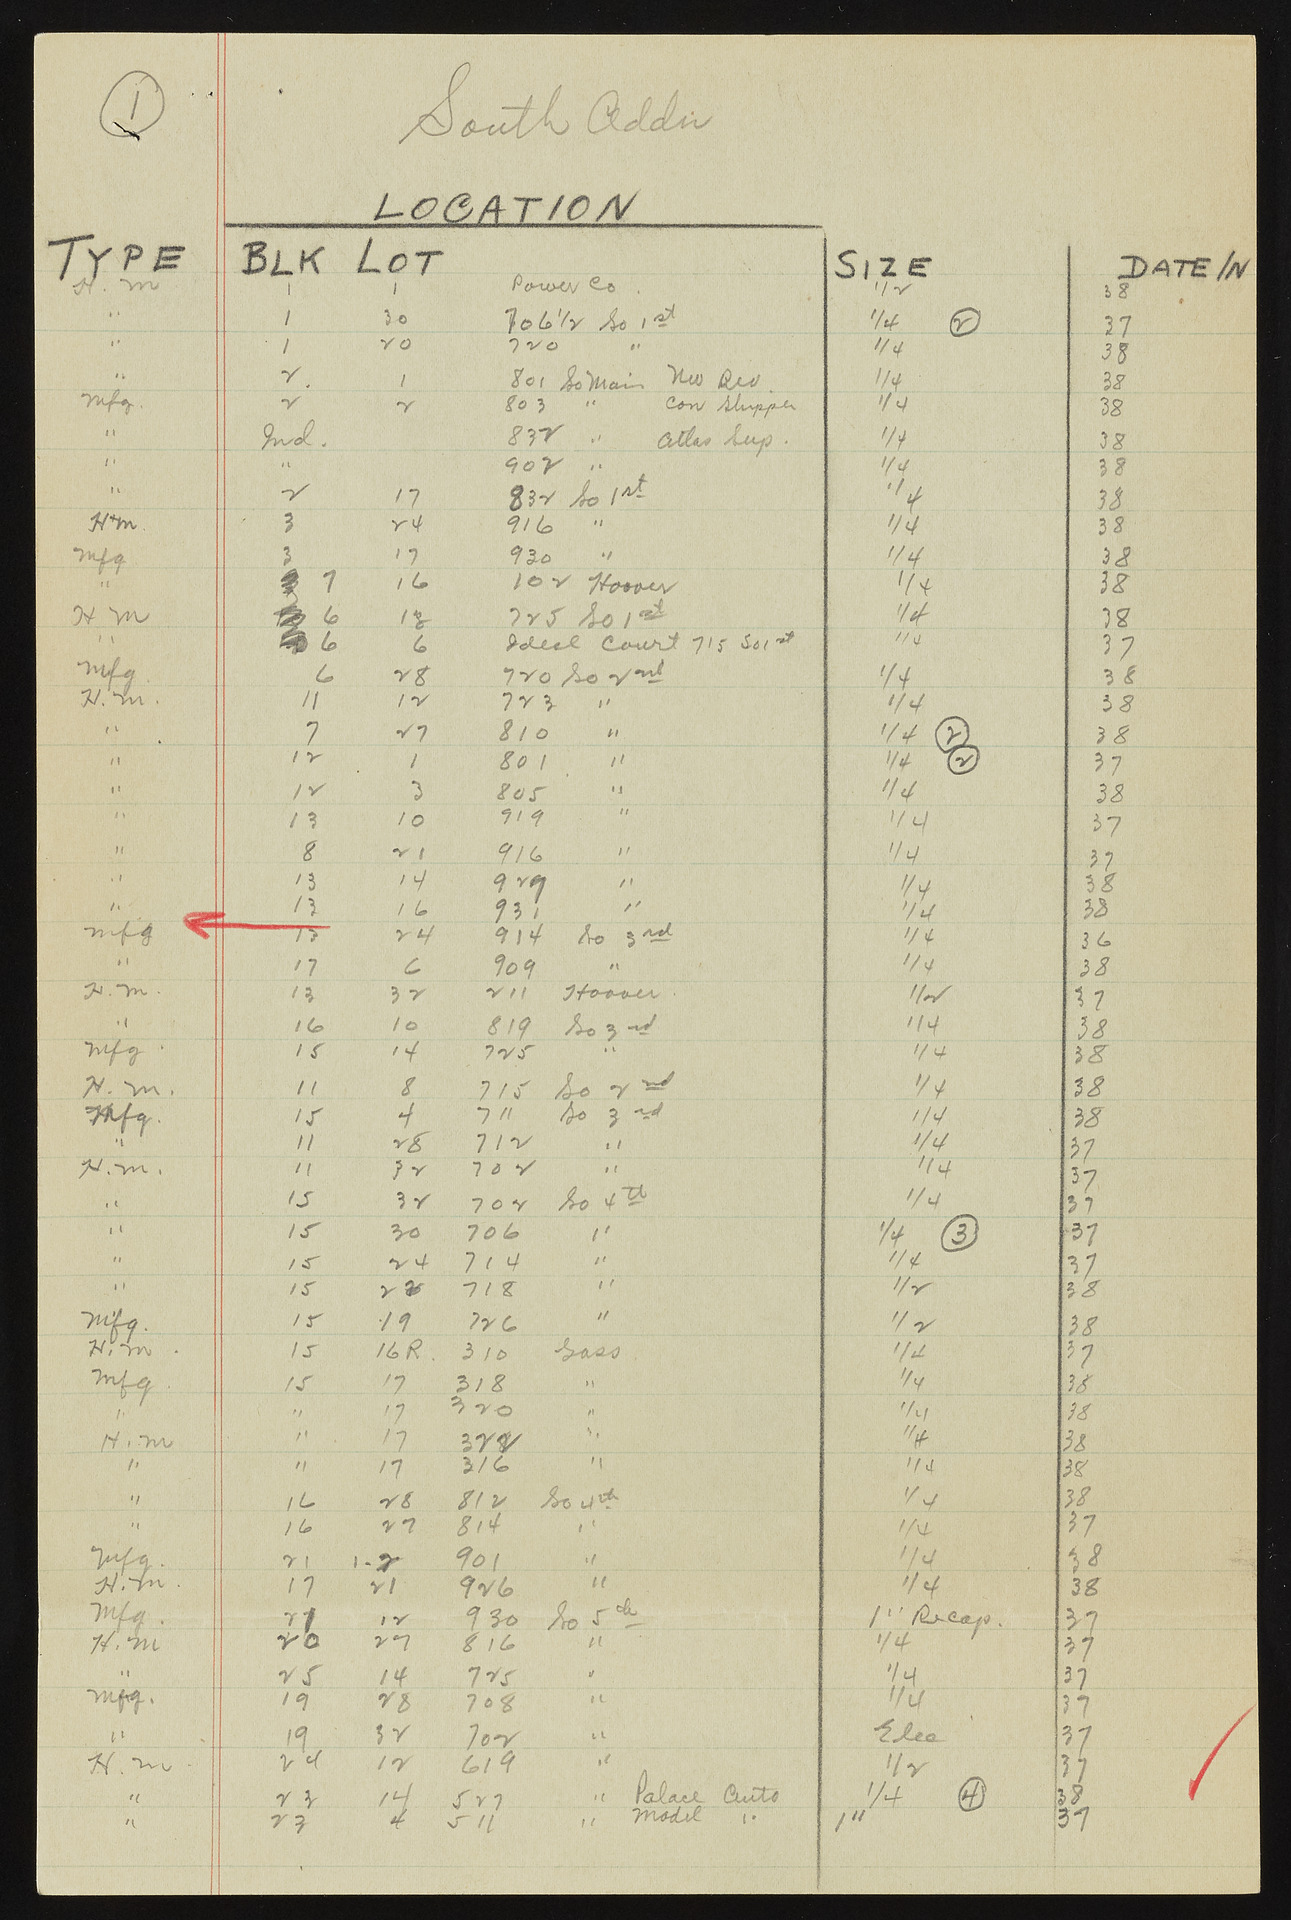 1
South Addn
LOCATION
TYPE BLK LOT SIZE DATE/N
H. M 1 1 Power Co. 1/2 38
" 1 30 706 1/2 So 1st 1/4 2 37
" 1 20 720 " 1/4 38
" 2. 1 801 So Main Nev Rev. 1/4 38
Mfg. 2 2 803 " Con Shipper 1/4 38
" Ind. 832 " Atlas Sup. 1/4 38
" " 902 " 1/4 38
" 2 17 832 So 1st 1/4 38
H.M. 3 24 916 " 1/4 38
Mfg 3 17 930 " 1/4 38
" 7 16 102 Hoover 1/4 38
H M 6 12 725 So 1st 1/4 38
" 6 6 Ideal Court 715 So 1st 1/4 37
Mfg. 6 28 720 So 2nd 1/4 38
H. M. 11 12 723 " 1/4 38
" 7 27 810 " 1/4 2 38
" 12 1 801 " 1/4 2 37
" 12 3 805 " 1/4 38
" 13 10 919 " 1/4 37
" 8 21 916 " 1/4 37
" 13 14 929 " 1/4 38
" 13 16 931 " 1/4 38
Mfg 13 24 914 So 3rd 1/4 36
" 17 6 909 " 1/4 38
H. M. 13 32 211 Hoover. 1/2 37
" 16 10 819 So 3rd 1/4 38
Mfg. 15 14 725 " 1/4 38
H. M. 11 8 715 So 2nd 1/4 38
Mfg. 15 4 711 So 3rd 1/4 38
" 11 28 712 " 1/4 37
H. M. 11 32 702 " 1/4 37
" 15 32 702 So 4th 1/4 37
" 15 30 706 " 1/4 3 37
" 15 24 714 " 1/4 37
" 15 22 718 " 1/2 38
Mfg. 15 19 726 " 1/2 38
H. M. 15 16R. 310 Gass 1/4 37
Mfg. 15 17 318 " 1/4 38
" " 17 320 " 1/4 38
H. M " 17 322 " 1/4 38
" " 17 316 " 1/4 38
" 16 28 812 So 4th 1/4 38
" 16 27 814 " 1/4 37
Mfg. 21 1-2 901 " 1/4 38
H. M. 17 21 926 " 1/4 38
Mfg. 21 12 930 So 5th 1" Recap. 37
H. M 20 27 816 " 1/4 37
" 25 14 725 " 1/4 37
Mfg. 19 28 708 " 1/4 37
" 19 32 702 " Elec 37
H. M. 24 12 619 " 1/2 37
" 23 14 527 " Palace Auto 1/4 4 38
" 23 4 511 " Model " 1" 37